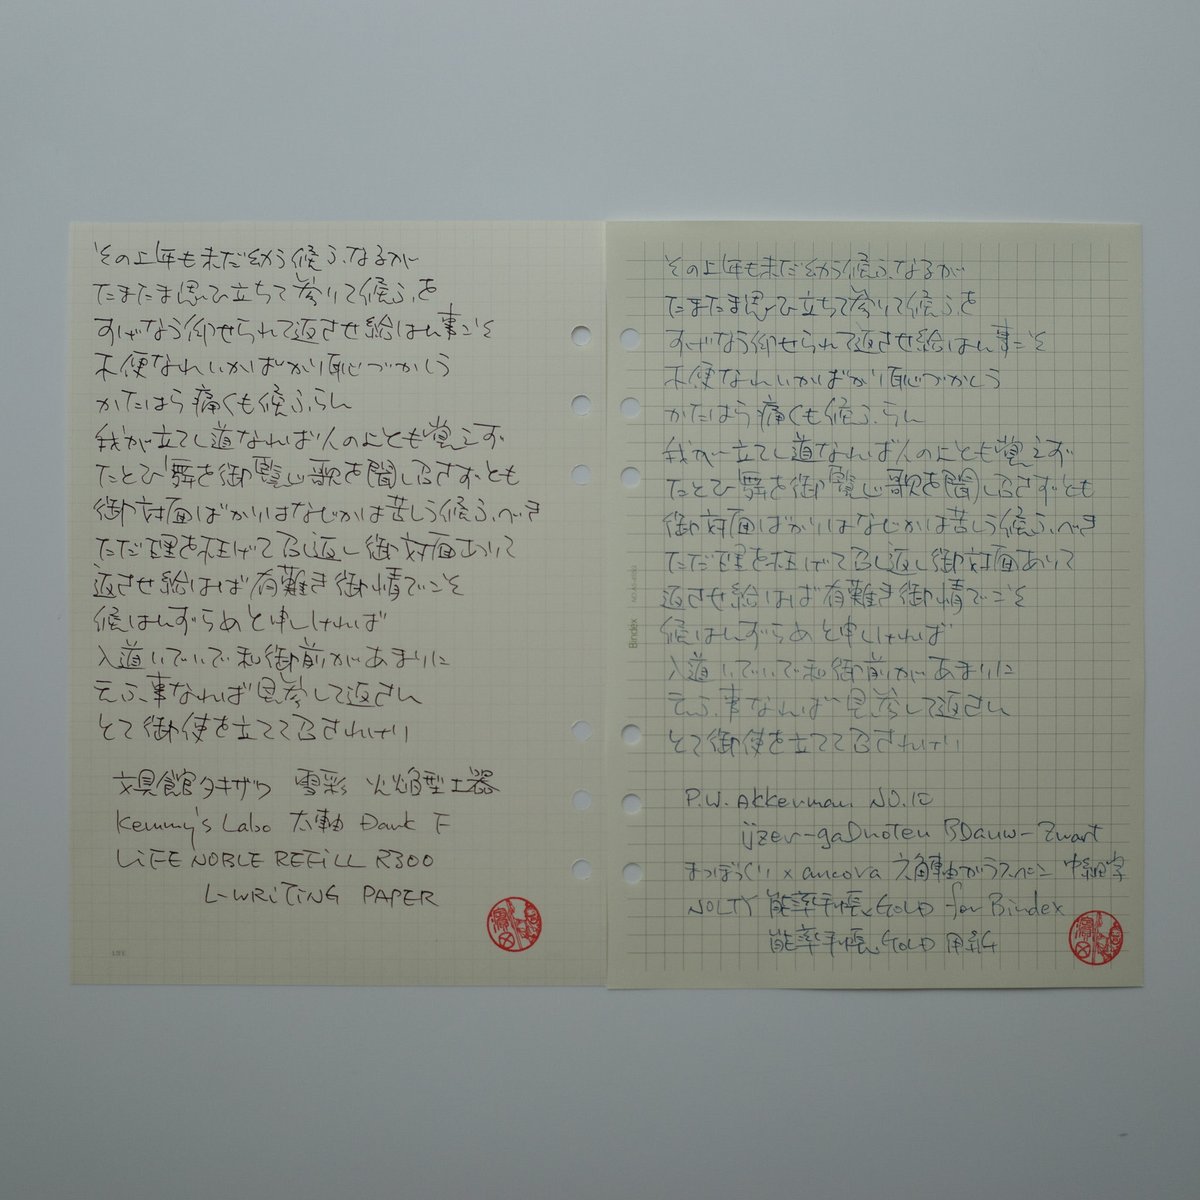 その上年も未だ幼う候ふなるが
たまたま思ひ立ちて参りて候ふを
すげなう仰せられて返させ給はん事こそ
不便なれいかばかり恥づかしう
かたはら痛くも候ふらん
我が立てし道なれば人の上とも覚えず
たとひ舞を御覧じ歌を聞し召さずとも
御対面ばかりはなじかは苦しう候ふべき
ただ理を枉げて召し返し御対面ありて
返させ給はば有難き御情でこそ
候はんずらめと申しければ
入道いでいで和御前があまりに
云ふ事なれば見参して返さん
とて御使を立てて召されけり
文具館タキザワ 雪彩 火焔型土器
Kemmy's Labo 太軸 Dark F
LIFE NOBLE REFILL R300
L-WRITING PAPER
LIFE
その上年も未だ幼う候ふなるが
たまたま思ひ立ちて参りて候ふを
すげなう仰せられて返させ給はん事こそ
不便なれいかばかり恥づかしう
かたはら痛くも候ふらん
我が立てし道なれば人の上とも覚えず
たとひ舞を御覧じ歌を聞し召さずとも
御対面ばかりはなじかは苦しう候ふべき
ただ理を枉げて召し返し御対面ありて
返させ給はば有難き御情でこそ
候はんずらめと申しければ
入道いでいで和御前があまりに
云ふ事なれば見参して返さん
とて御使を立てて召されけり
P.W. Akkerman NO.10
ijzer-gaDnoten BDauw-Zwart
まつぼっくり × ancora 六角軸ガラスペン 中細字
NOLTY 能率手帳GOLD for Bindex
能率手帳GOLD 用紙
Bindex